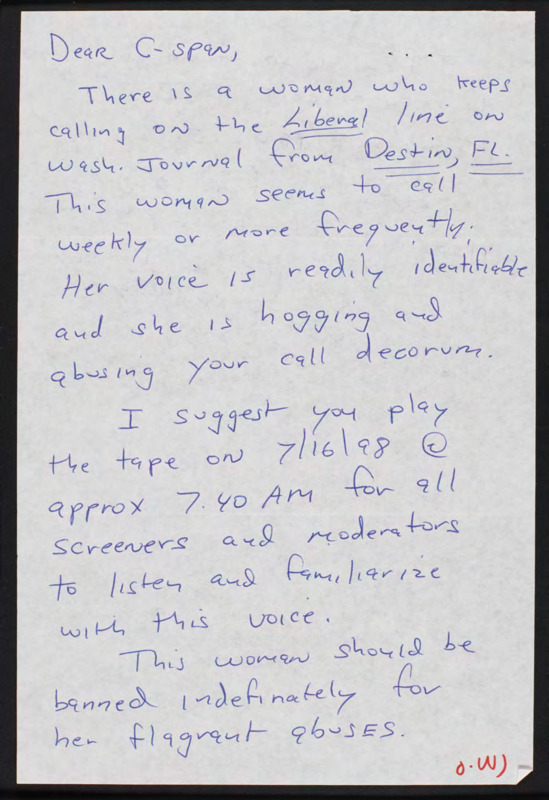 Dear C-span,
...
There is a woman who keeps
calling on the Liberal line on
Wash. Journal from Destin, FL.
This woman seems to call
weekly or more frequently.
Her voice is readily identifiable
and she is hogging and
abusing your call decorum.
I suggest you play
the tape on 7/16/98 @
approx 7:40 AM for all
screeners and moderators
to listen and familiarize
with this voice.
This woman should be
banned indefinately for
her flagrant abuses.